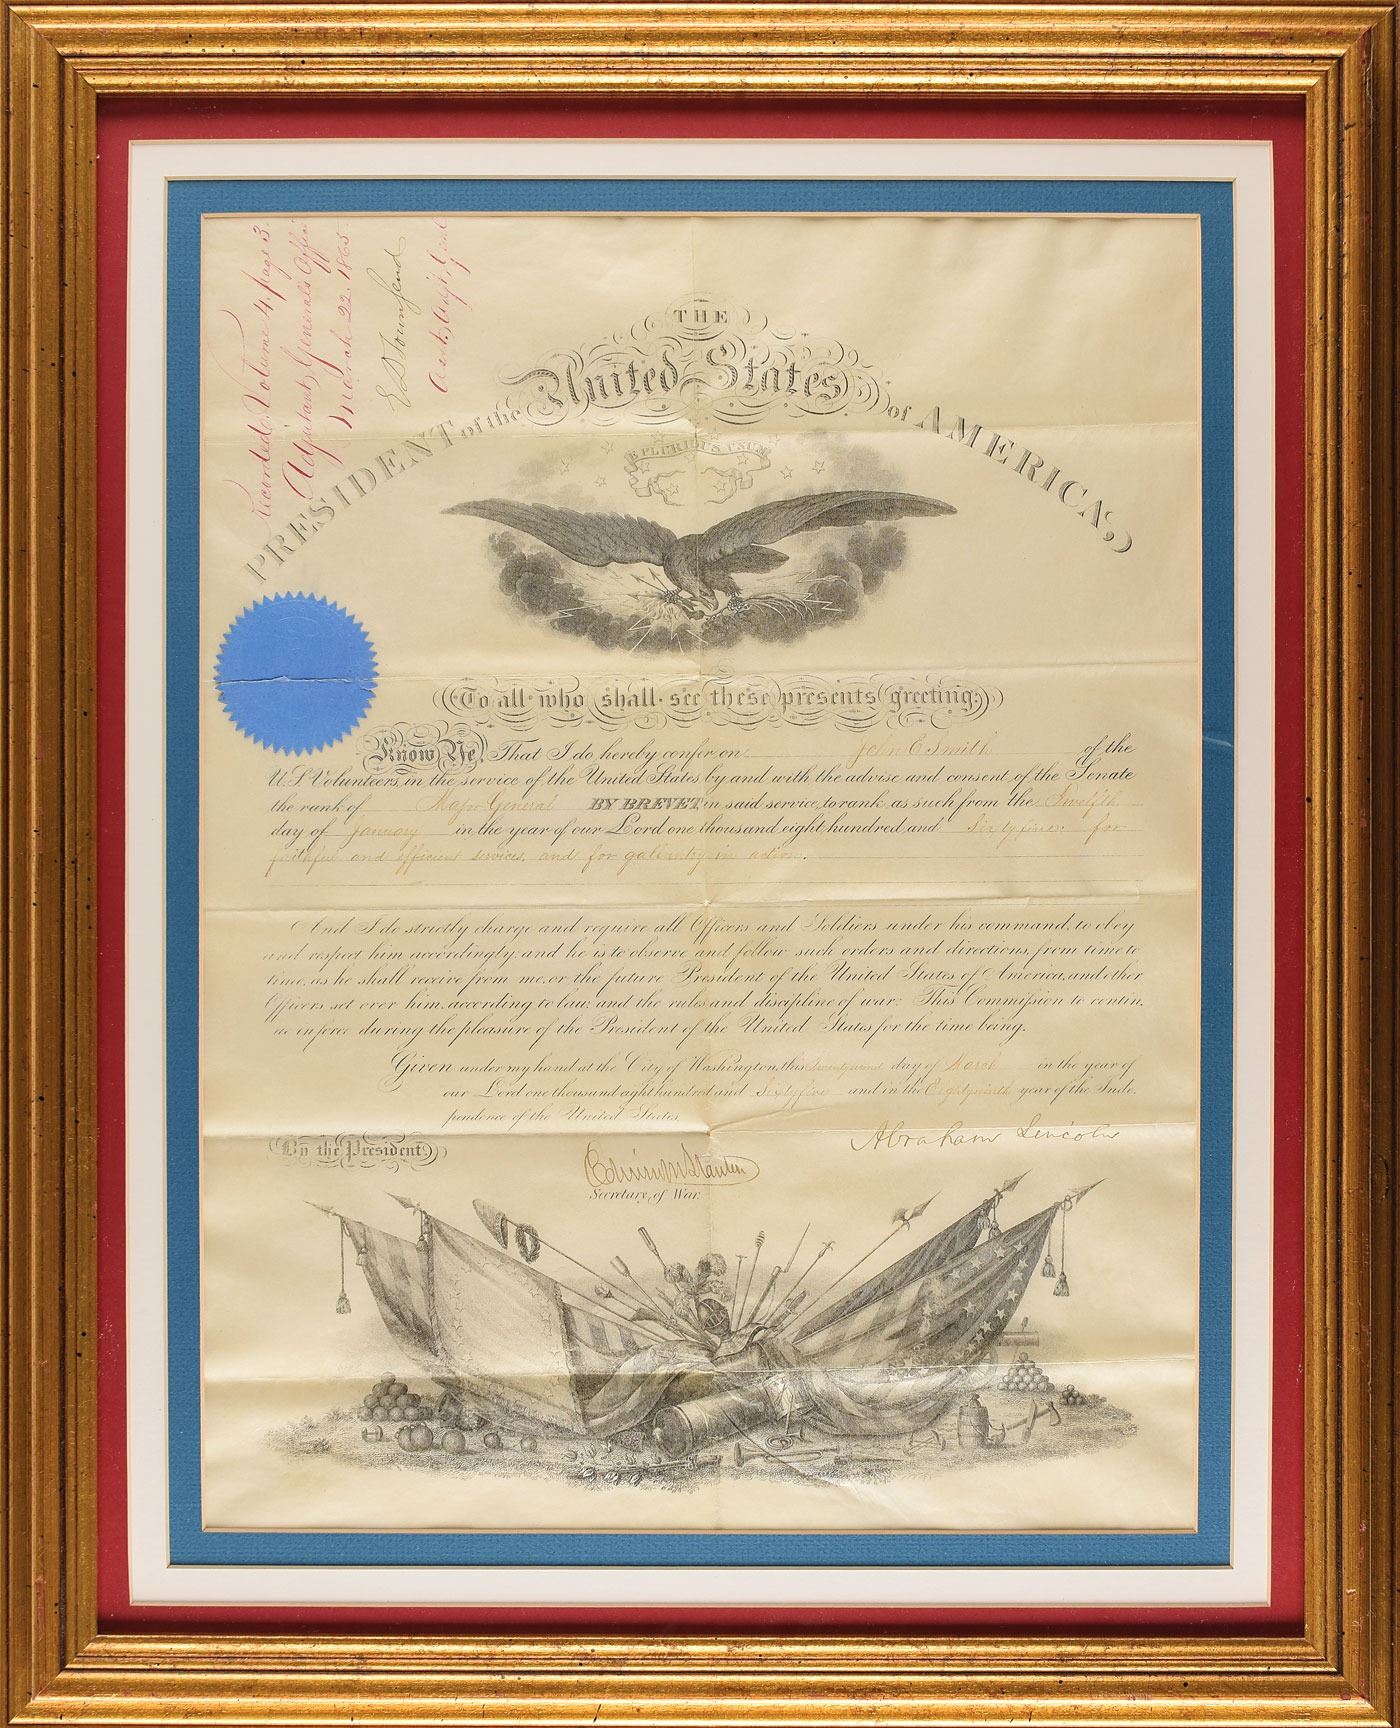 Recorded, Volume 4, page 3.
Adjutant Generals Office
March 22. 1865.
E D Townsend
Asst. Adjt. Genl
THE
PRESIDENT of the United States of AMERICA,
E PLURIBUS UNUM
To all who shall see these presents greeting:
Know Ye, That I do hereby confer on John E Smith of the
U.S. Volunteers, in the service of the United States by and with the advise and consent of the Senate
the rank of Major General BY BREVET in said service, to rank as such from the Twelfth
day of January in the year of our Lord one thousand eight hundred and Sixty five: for
faithful and efficient services, and for gallantry in action.
And I do strictly charge and require all Officers and Soldiers under his command, to obey
and respect him accordingly: and he is to observe and follow such orders and directions, from time to
time, as he shall receive from me, or the future President of the United States of America, and other
Officers set over him, according to law, and the rules and discipline of war: This Commission to contin.
ue in force during the pleasure of the President of the United States for the time being.
Given under my hand at the City of Washington, this day of March in the year of
our Lord one thousand eight hundred and Sixty five and in the Eightyninth year of the Inde.
pendence of the United States.
Abraham Lincoln
By the President,
Edwin M Stanton
Secretary, of War.